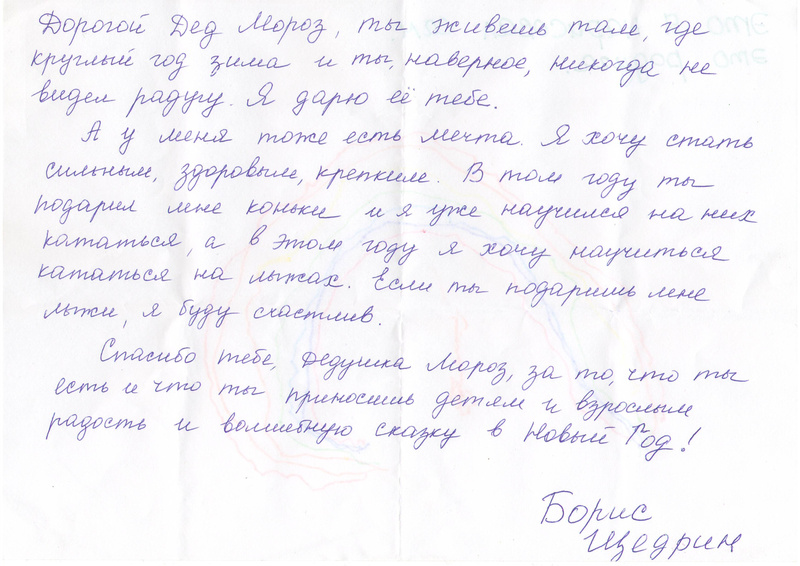 Дорогой Дед Мороз, ты живешь там, где
круглый год зима и ты, наверное, никогда не
видел радугу. Я дарю её тебе.
А у меня тоже есть мечта. Я хочу стать
сильным, здоровым, крепким. В том году ты
подарил мне коньки и я уже научился на них
кататься, а в этом году я хочу научиться
кататься на лыжах. Если ты подаришь мне
лыжи, я буду счастлив.
Спасибо тебе, Дедушка Мороз, за то, что ты
есть и что ты приносишь детям и взрослым
радость и волшебную сказку в Новый Год!
Борис
Щедрин